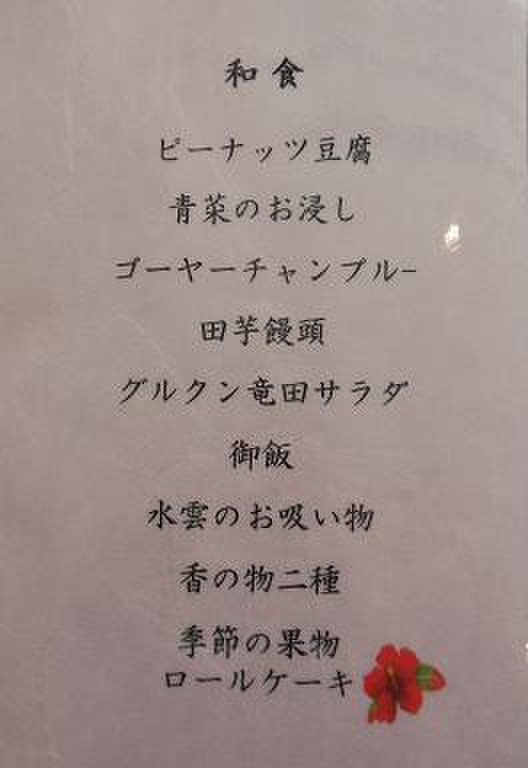 和食
ピーナッツ豆腐
青菜のお浸し
ゴーヤーチャンプル-
田芋饅頭
グルクン竜田サラダ
御飯
水雲のお吸い物
香の物二種
季節の果物
ロールケーキ